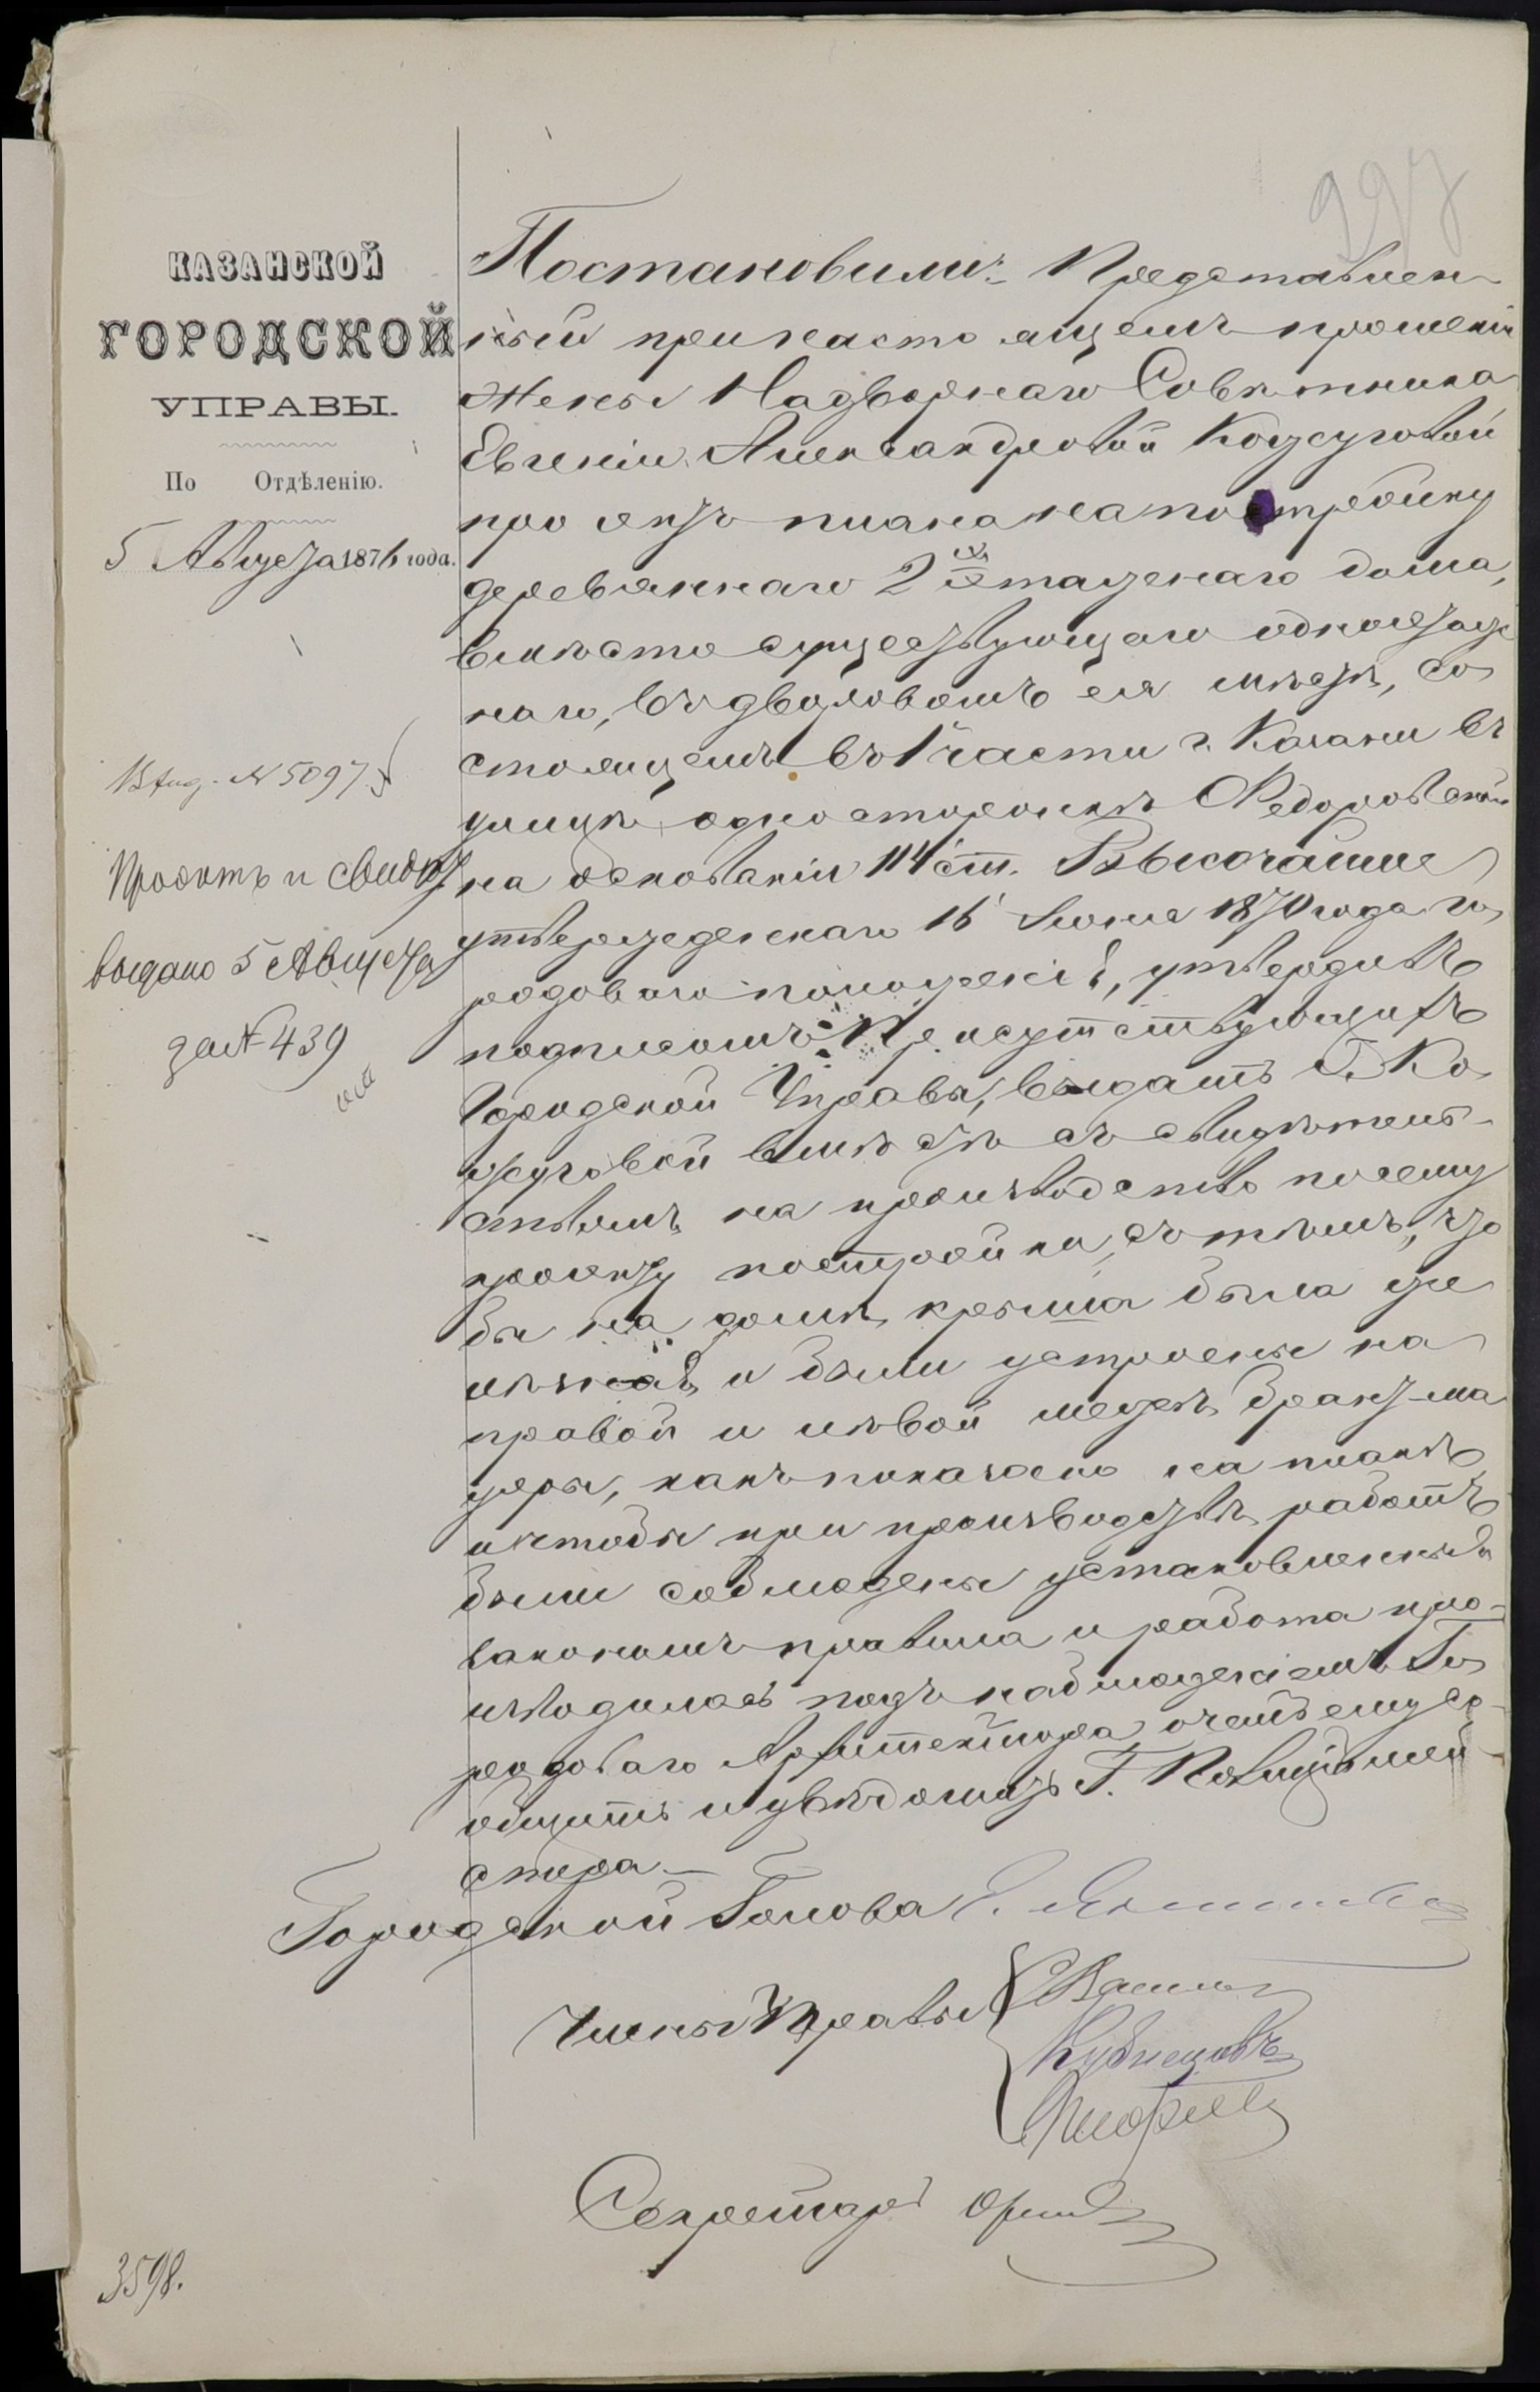 КАЗАНСКОЙ
ГОРОДСКОЙ
УПРАВЫ.
По Отдѣленію.
5 Августа 1876 года.
Вход. № 5097
Проэктъ и свид.
выдано 5 Августа
за № 439
3598.
Постановили: Представлен
ный при настоящемъ прошеніи
жены Надворнаго Совѣтника
Евгеніи Александровой Кожуховой
проэктъ плана на постройку
деревяннаго 2хъ этажнаго дома,
вмѣсто существующаго одноэтаж
наго, въ дворовомъ ея мѣстѣ, со
стоящемъ въ 1 части г. Казани въ
улицѣ односторонкѣ Ѳедоровской
на основаніи 114 ст. Высочайше
утвержденнаго 16 Іюня 1870 года го
родоваго положенія, утвердить
подписомъ Присутствующихъ
Городской Управы, выдать Г. Ко
жуховой вмѣстѣ съ свидѣтель
ствомъ на производство по сему
проэкту постройки, съ тѣмъ, что
бы на домѣ крыша была же
лѣзная и были устроены на
правой и лѣвой межѣ брантма
уеры, какъ показано на планѣ
и чтобы при производствѣ работъ
были соблюдены установленныя
закономъ правила и работа про-
изводилась подъ наблюденіемъ Го
родоваго Архитектора, о чемъ ему со-
общить и увѣдомить Г. Полицій мей
стера.
Городской Голова
Члены Управы
Кузнецовъ
Секретарь